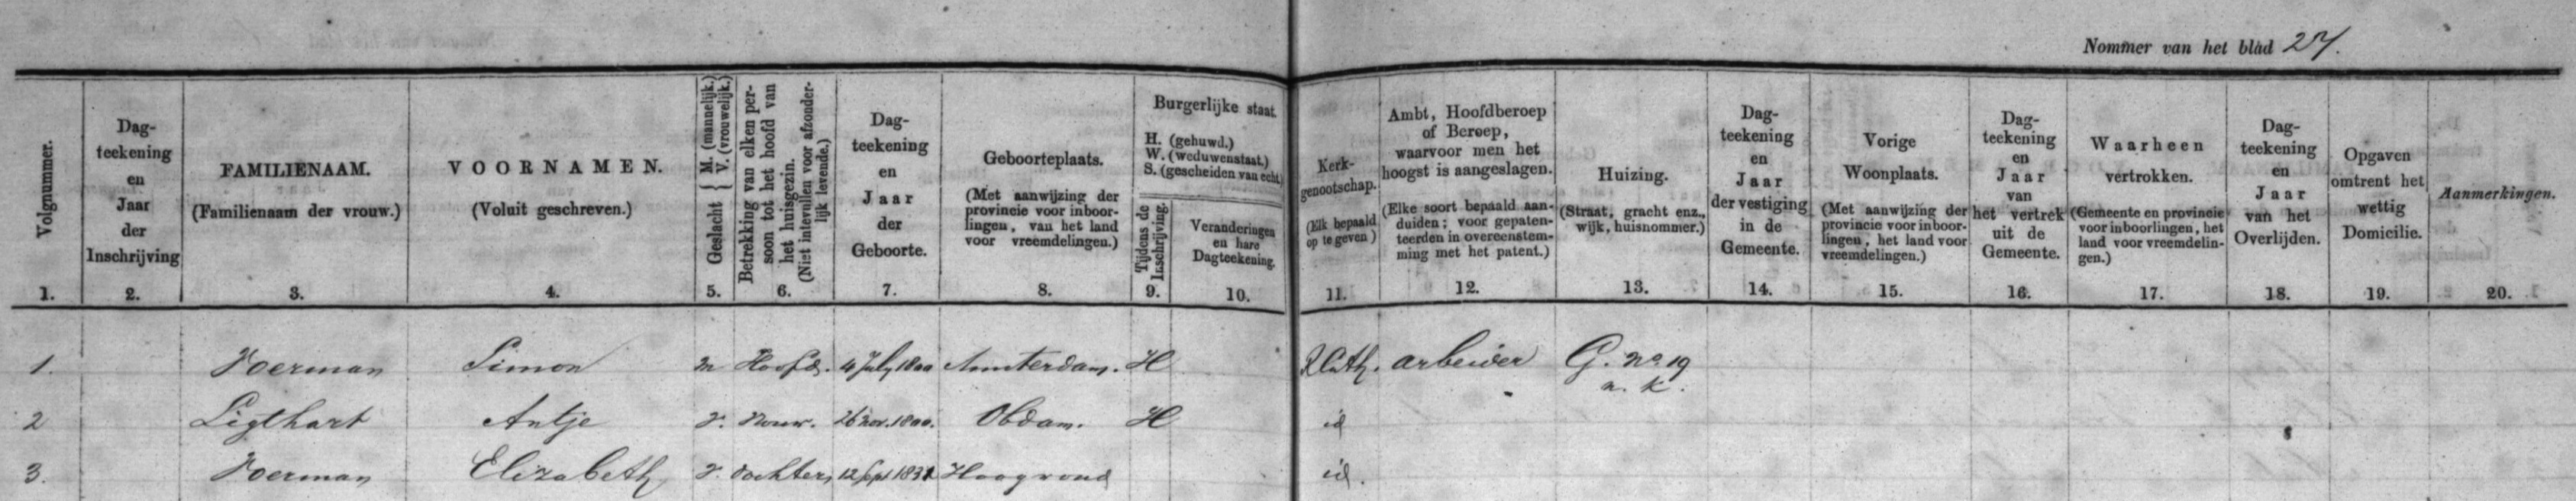 Nommer van het blad 27.
Volgnummer.
1.
Dag-
teekening
en
Jaar
der
Inschrijving
2.
FAMILIENAAM.
(Familienaam der vrouw.)
3.
VOORNAMEN.
(Voluit geschreven.)
4.
Geslacht { M. (mannelijk.)
V. (vrouwelijk.)
5.
Betrekking van elken per-
soon tot het hoofd van
het huisgezin.
(Niet intevullen voor afzonder-
lijk levende.)
6.
Dag-
teekening
en
Jaar
der
Geboorte.
7.
Geboorteplaats.
(Met aanwijzing der
provincie voor inboor-
lingen, van het land
voor vreemdelingen.)
8.
Burgerlijke staat.
H. (gehuwd.)
W. (weduwenstaat.)
S. (gescheiden van echt.)
Tijdens de
Inschrijving.
9.
Veranderingen
en hare
Dagteekening.
10.
Kerk-
genootschap.
(Elk bepaald
op te geven)
11.
Ambt, Hoofdberoep
of Beroep,
waarvoor men het
hoogst is aangeslagen.
(Elke soort bepaald aan-
duiden; voor gepaten-
teerden in overeenstem-
ming met het patent.)
12.
Huizing.
(Straat, gracht enz.,
wijk, huisnommer.)
13.
Dag-
teekening
en
Jaar
der vestiging
in de
Gemeente.
14.
Vorige
Woonplaats.
(Met aanwijzing der
provincie voor inboor-
lingen, het land voor
vreemdelingen.)
15.
Dag-
teekening
en
Jaar
van
het vertrek
uit de
Gemeente.
16.
Waarheen
vertrokken.
(Gemeente en provincie
voor inboorlingen, het
land voor vreemdelin-
gen.)
17.
Dag-
teekening
en
Jaar
van het
Overlijden.
18.
Opgaven
omtrent het
wettig
Domicilie.
19.
Aanmerkingen.
20.
1. Voerman Simon m Hoofd. 4 July 1800 Amsterdam. H R Cath. arbeider G. no. 19
n. k.
2 Ligthart Antje v. Vrouw. 26 nov. 1800. Obdam. H id
3. Voerman Elizabeth v. dochter 12 Sept 1831 Hoogwoud id.